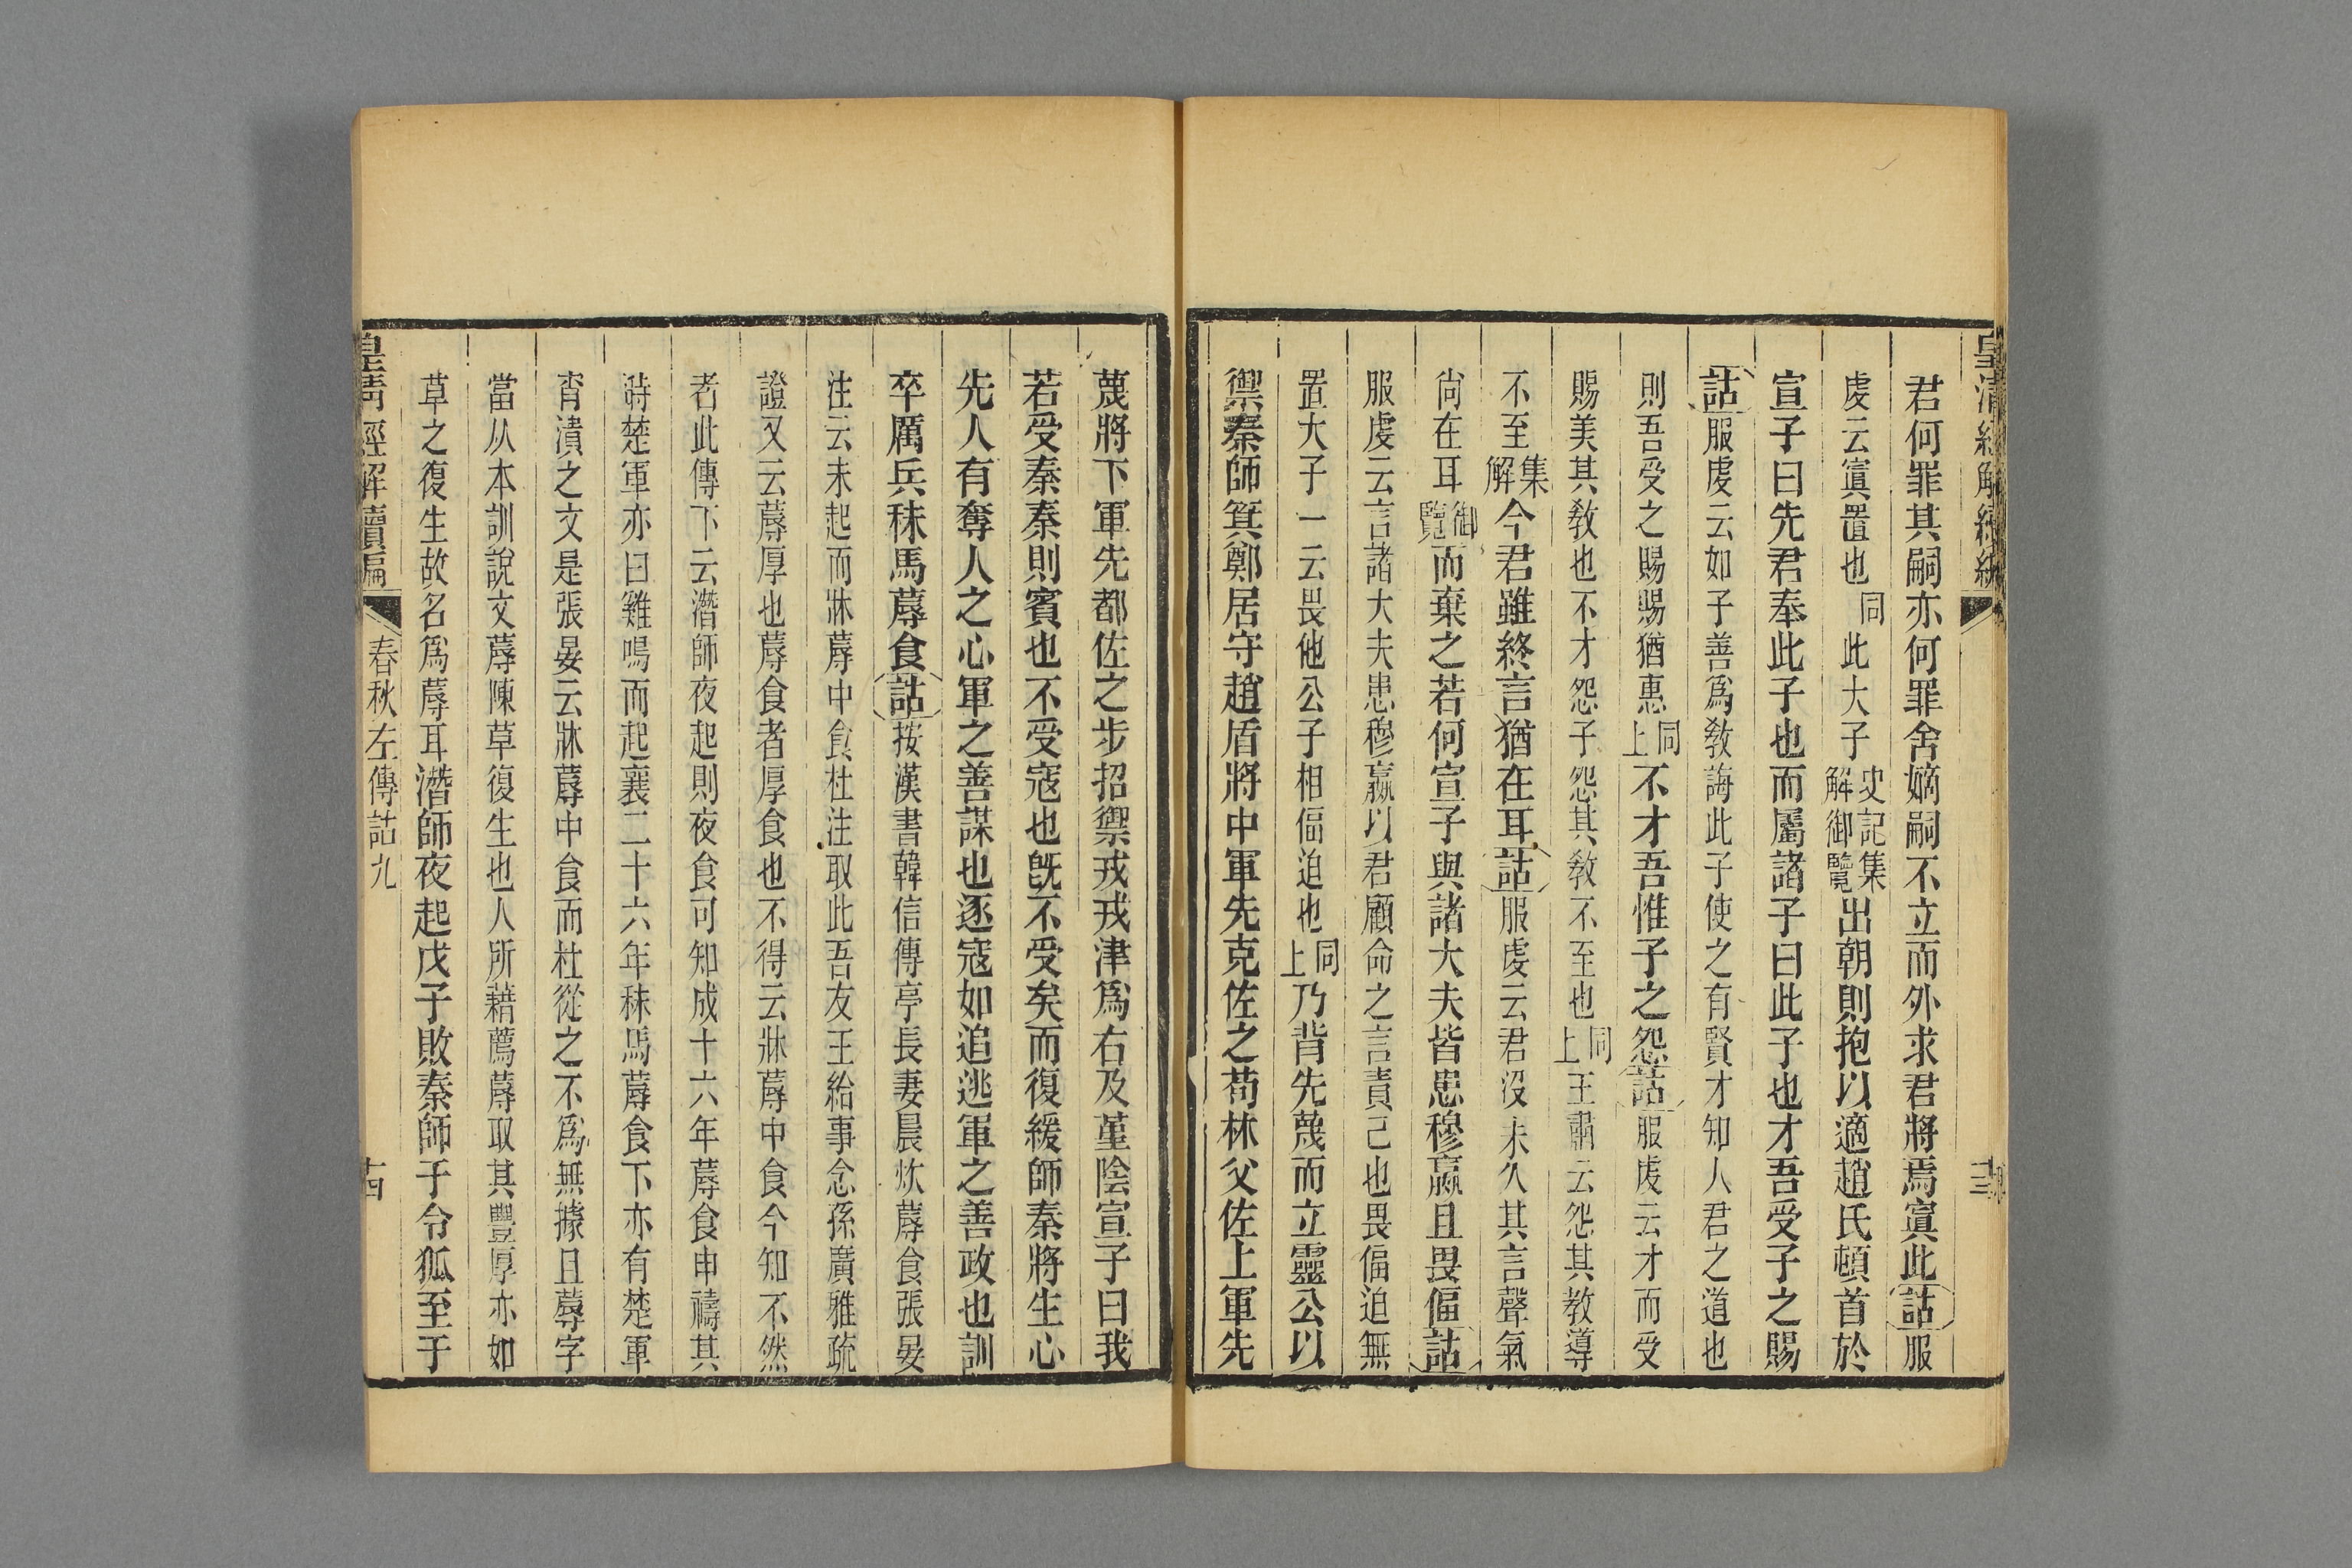 君何罪其嗣亦何罪舍嫡嗣不立而外求君將焉寘此詁服
虔云寘置也同此大子史記集解御覽出朝則抱以適趙氏頓首於
宣子曰先君奉此子也而屬諸子曰此子也才吾受子之賜
詁服虔云如子善爲敎誨此子使之有賢才知人君之道也
則吾受之賜賜猶惠同上不才吾惟子之怨詁服虔云才而受
賜美其敎也不才怨子怨其敎不至也同上王肅云怨其敎導
不至集解今君雖終言猶在耳詁服虔云君沒未久其言聲氣
尙在耳御覽而棄之若何宣子與諸大夫皆患穆嬴且畏偪詁
服虔云言諸大夫患穆嬴以君顧命之言責己也畏偪迫無
置大子一云畏他公子相偪迫也同上乃背先蔑而立靈公以
禦秦師箕鄭居守趙盾將中軍先克佐之荀林父佐上軍先
蔑將下軍先都佐之步招禦戎戎津爲右及菫陰宣子曰我
若受秦秦則賓也不受寇也旣不受矣而復緩師秦將生心
先人有奪人之心軍之善謀也逐寇如追逃軍之善政也訓
卒厲兵秣馬蓐食詁按漢書韓信傳亭長妻晨炊蓐食張晏
注云未起而牀蓐中食杜注取此吾友王給事念孫廣雅疏
證又云蓐厚也蓐食者厚食也不得云牀蓐中食今知不然
者此傳下云潛師夜起則夜食可知成十六年蓐食申禱其
時楚軍亦曰雞鳴而起襄二十六年秣馬蓐食下亦有楚軍
宵潰之文是張晏云牀蓐中食而杜從之不爲無據且蓐字
當从本訓說文蓐陳草復生也人所藉薦蓐取其豐厚亦如
草之復生故名爲蓐耳潛師夜起戊子敗秦師于令狐至于
皇淸經解續編
春秋左傳詁九
十四